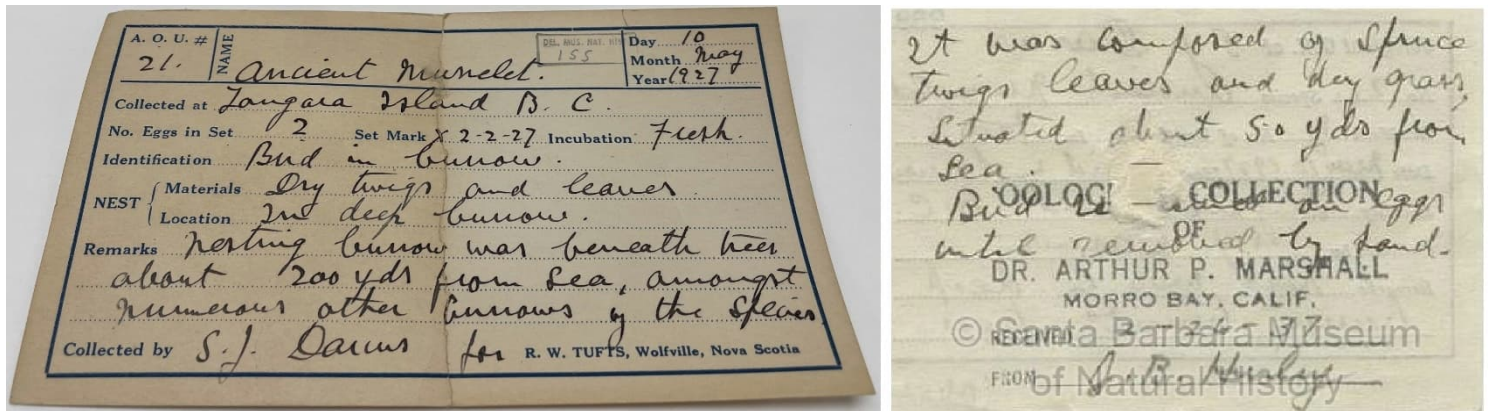 A. O. U. #
21.
NAME
Ancient Murrelet.
DEL. MUS. NAT. HIS
155
Day 10
Month May
Year 1927
Collected at Langara Island B. C.
No. Eggs in Set 2 Set Mark X 2-2-27 Incubation Fresh.
Identification Bird in burrow.
NEST
Materials Dry twigs and leaves
Location In deep burrow.
Remarks Nesting burrow was beneath trees
about 200 yds from sea, amongst
numerous other burrows of the species
Collected by S. J. Darcus for R. W. TUFTS, Wolfville, Nova Scotia
It was composed of Spruce
twigs leaves and dry grass,
Situated about 50 yds from
Sea.
OOLOGI COLLECTION
Bird on eggs
OF
until removed by hand.
DR. ARTHUR P. MARSHALL
MORRO BAY, CALIF.
RECEIVED 3-24-37
© Santa Barbara Museum
FROM
of Natural History